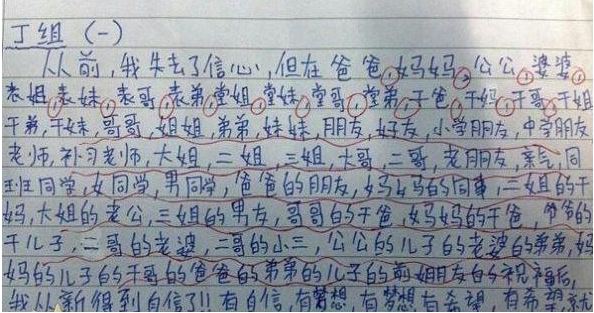 丁组 (一)
从前,我失去了信心,但在爸爸,妈妈,公公,婆婆,
表姐,表妹,表哥,表弟,堂姐,堂妹,堂哥,堂弟,干爸,干妈,干哥,干姐
干弟,干妹,哥哥,姐姐,弟弟,妹妹,朋友,好友,小学朋友,中学朋友,
老师,补习老师,大姐,二姐,三姐,大哥,二哥,老朋友,亲气,同
班同学,女同学,男同学,爸爸的朋友,妈妈的同事,二姐的干
妈,大姐的老公,三姐的男友,哥哥的干爸,妈妈的干爸,爷爷的
干儿子,二哥的老婆,二哥的小三,公公的儿子的老婆的弟弟,妈
妈的儿子的干哥的爸爸的弟弟的儿子的前女朋友的祝福后,
我从新得到自信了!! 有自信,有梦想,有梦想有希望,有希望,就